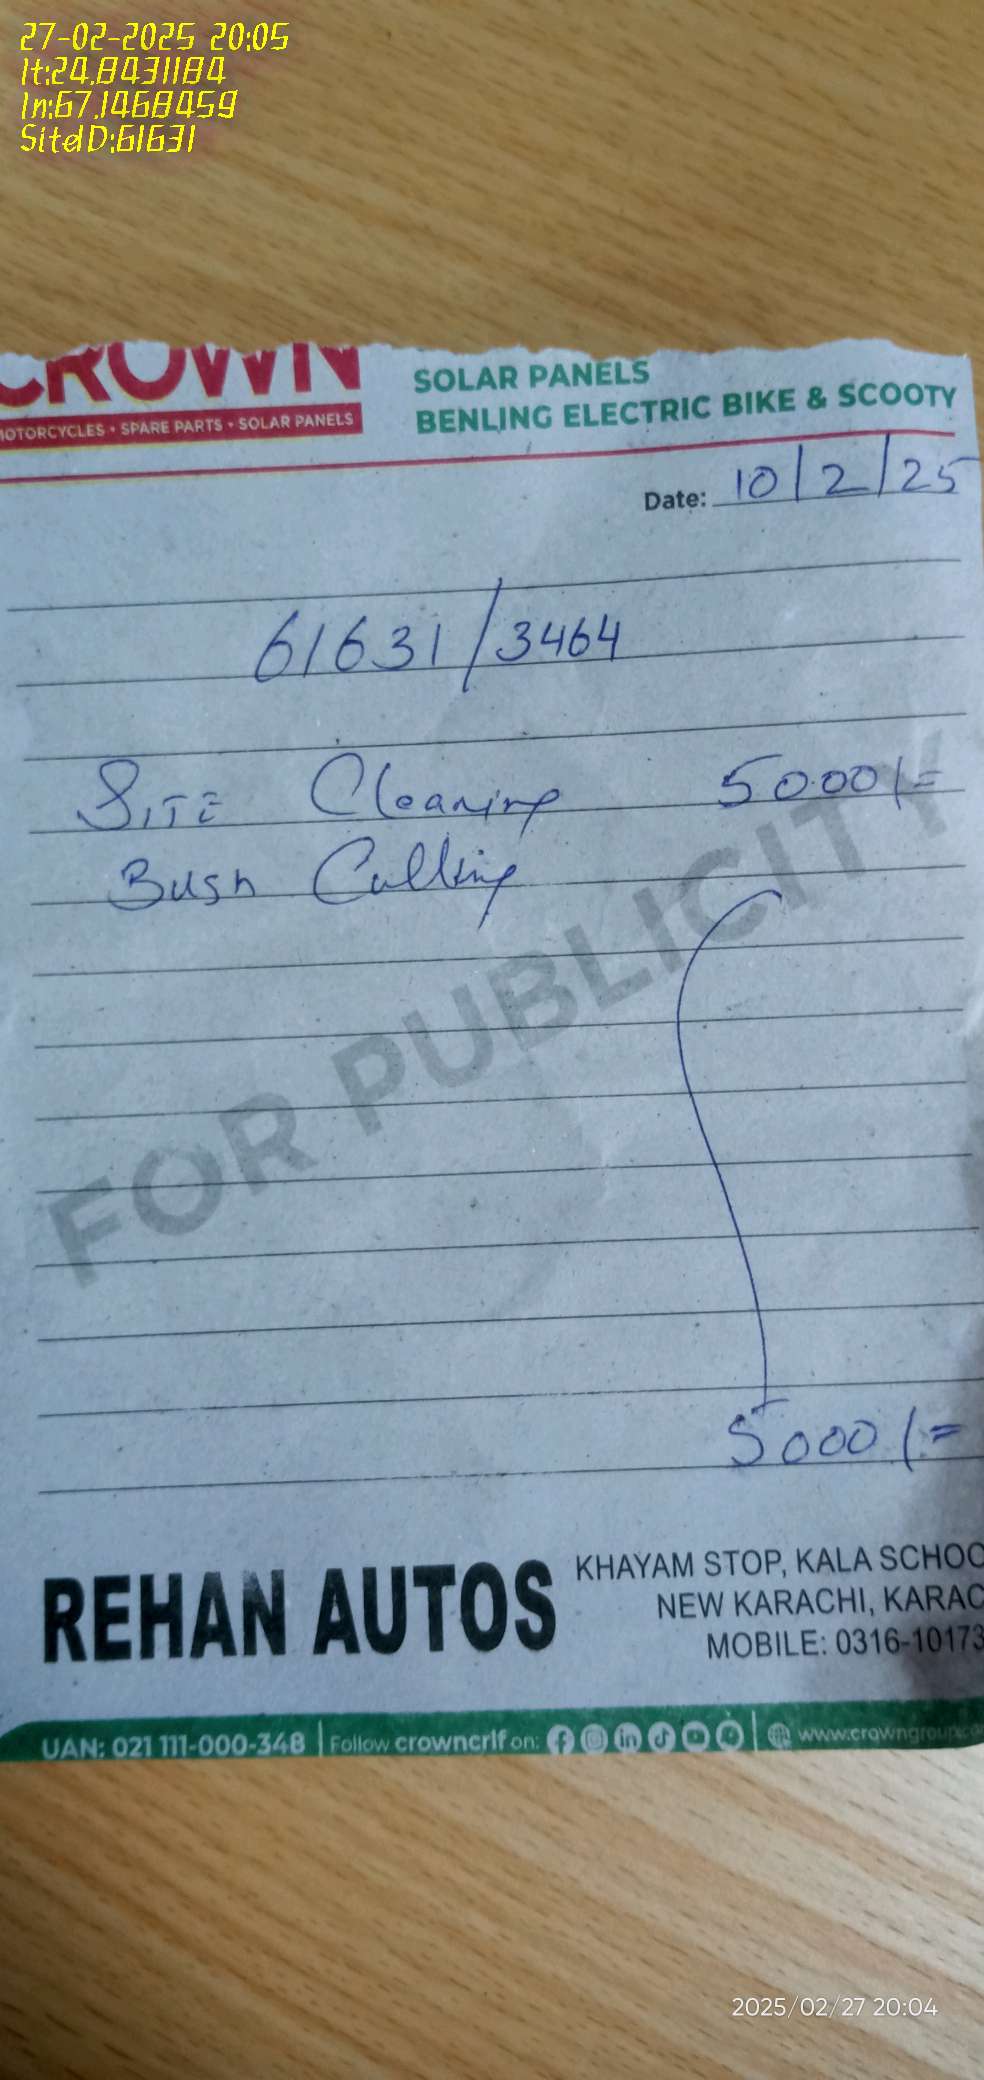 27-02-2025 20:05
lt:24.8431184
ln:67.1468459
SiteID:61631
CROWN
MOTORCYCLES • SPARE PARTS • SOLAR PANELS
SOLAR PANELS
BENLING ELECTRIC BIKE & SCOOTY
Date: 10/2/25
61631/3464
SITE Cleaning 5000/=
Bush Cutting
FOR PUBLICITY
5000/=
REHAN AUTOS
KHAYAM STOP, KALA SCHOO
NEW KARACHI, KARAC
MOBILE: 0316-10173
UAN: 021 111-000-348 | Follow crowncrlf on: | www.crowngroup.co
2025/02/27 20:04